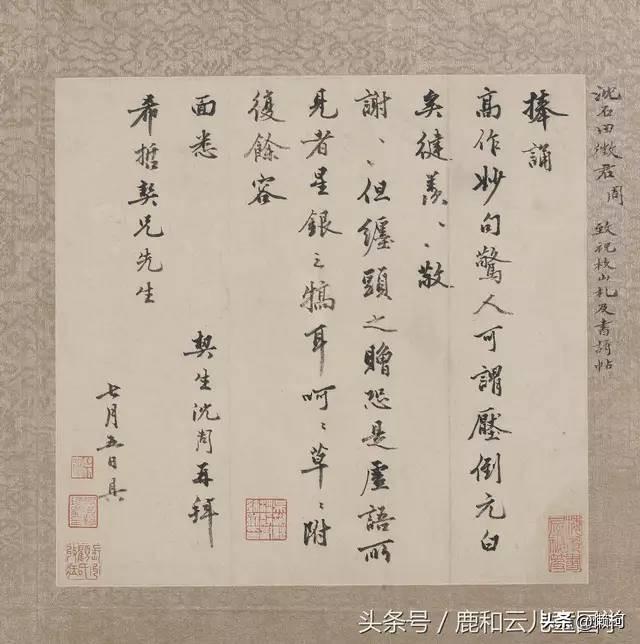 沈石田徵君周 致祝枝山札及書詩帖
捧誦
高作妙句驚人可謂壓倒元白
矣健羨、、敬
謝、、但纏頭之贈恐是虛語所
見者星銀之犒耳呵、、草、、附
復餘容
面悉
希哲契兄先生
契生沈周再拜
七月五日具
头条号 / 鹿和云儿
头条 @懒柯